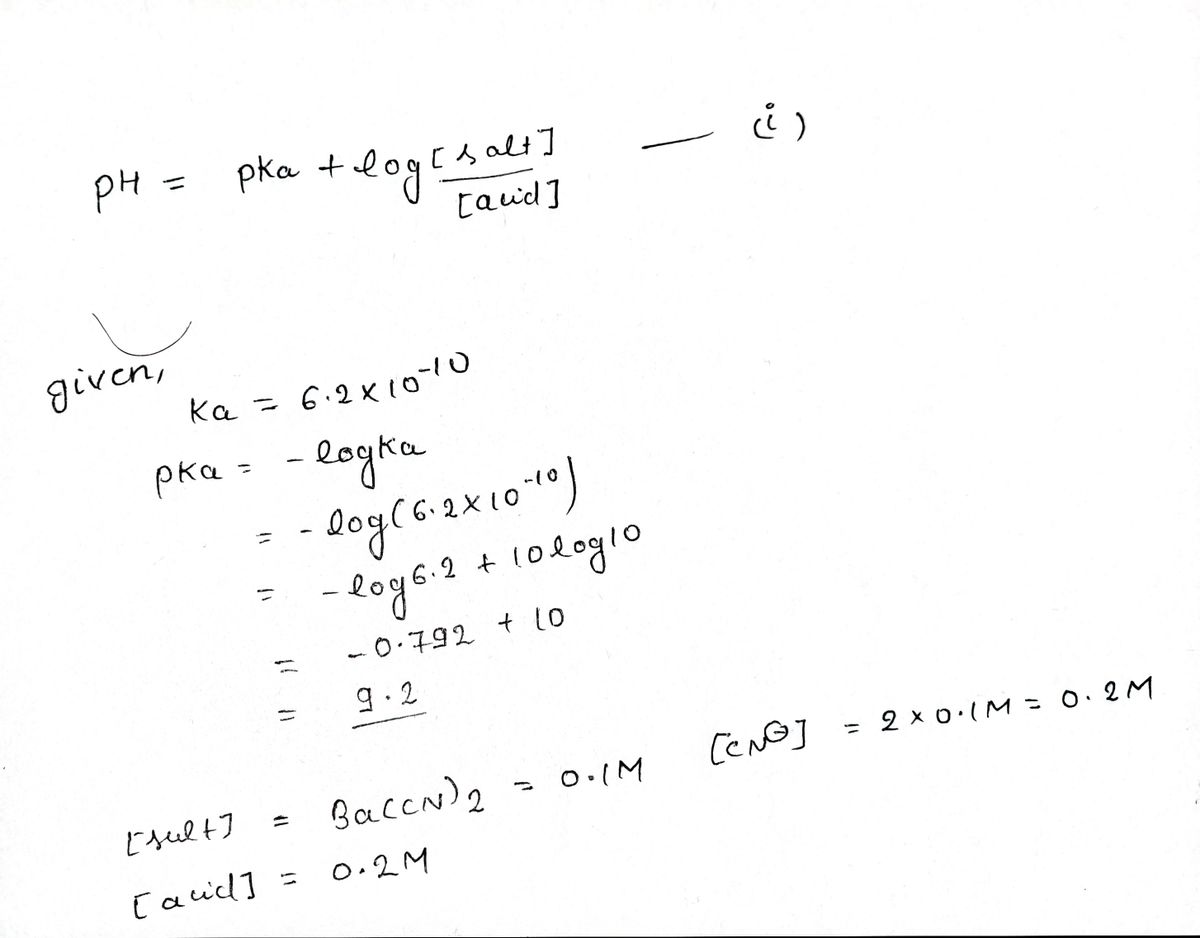 pH = pKa + log [salt]/[acid] — (i)
given,
Ka = 6.2 × 10⁻¹⁰
pKa = - log Ka
= - log(6.2 × 10⁻¹⁰)
= - log 6.2 + 10 log 10
= - 0.792 + 10
= 9.2
[salt] = Ba(CN)₂ = 0.1M [CN⊖] = 2 × 0.1M = 0.2M
[acid] = 0.2M